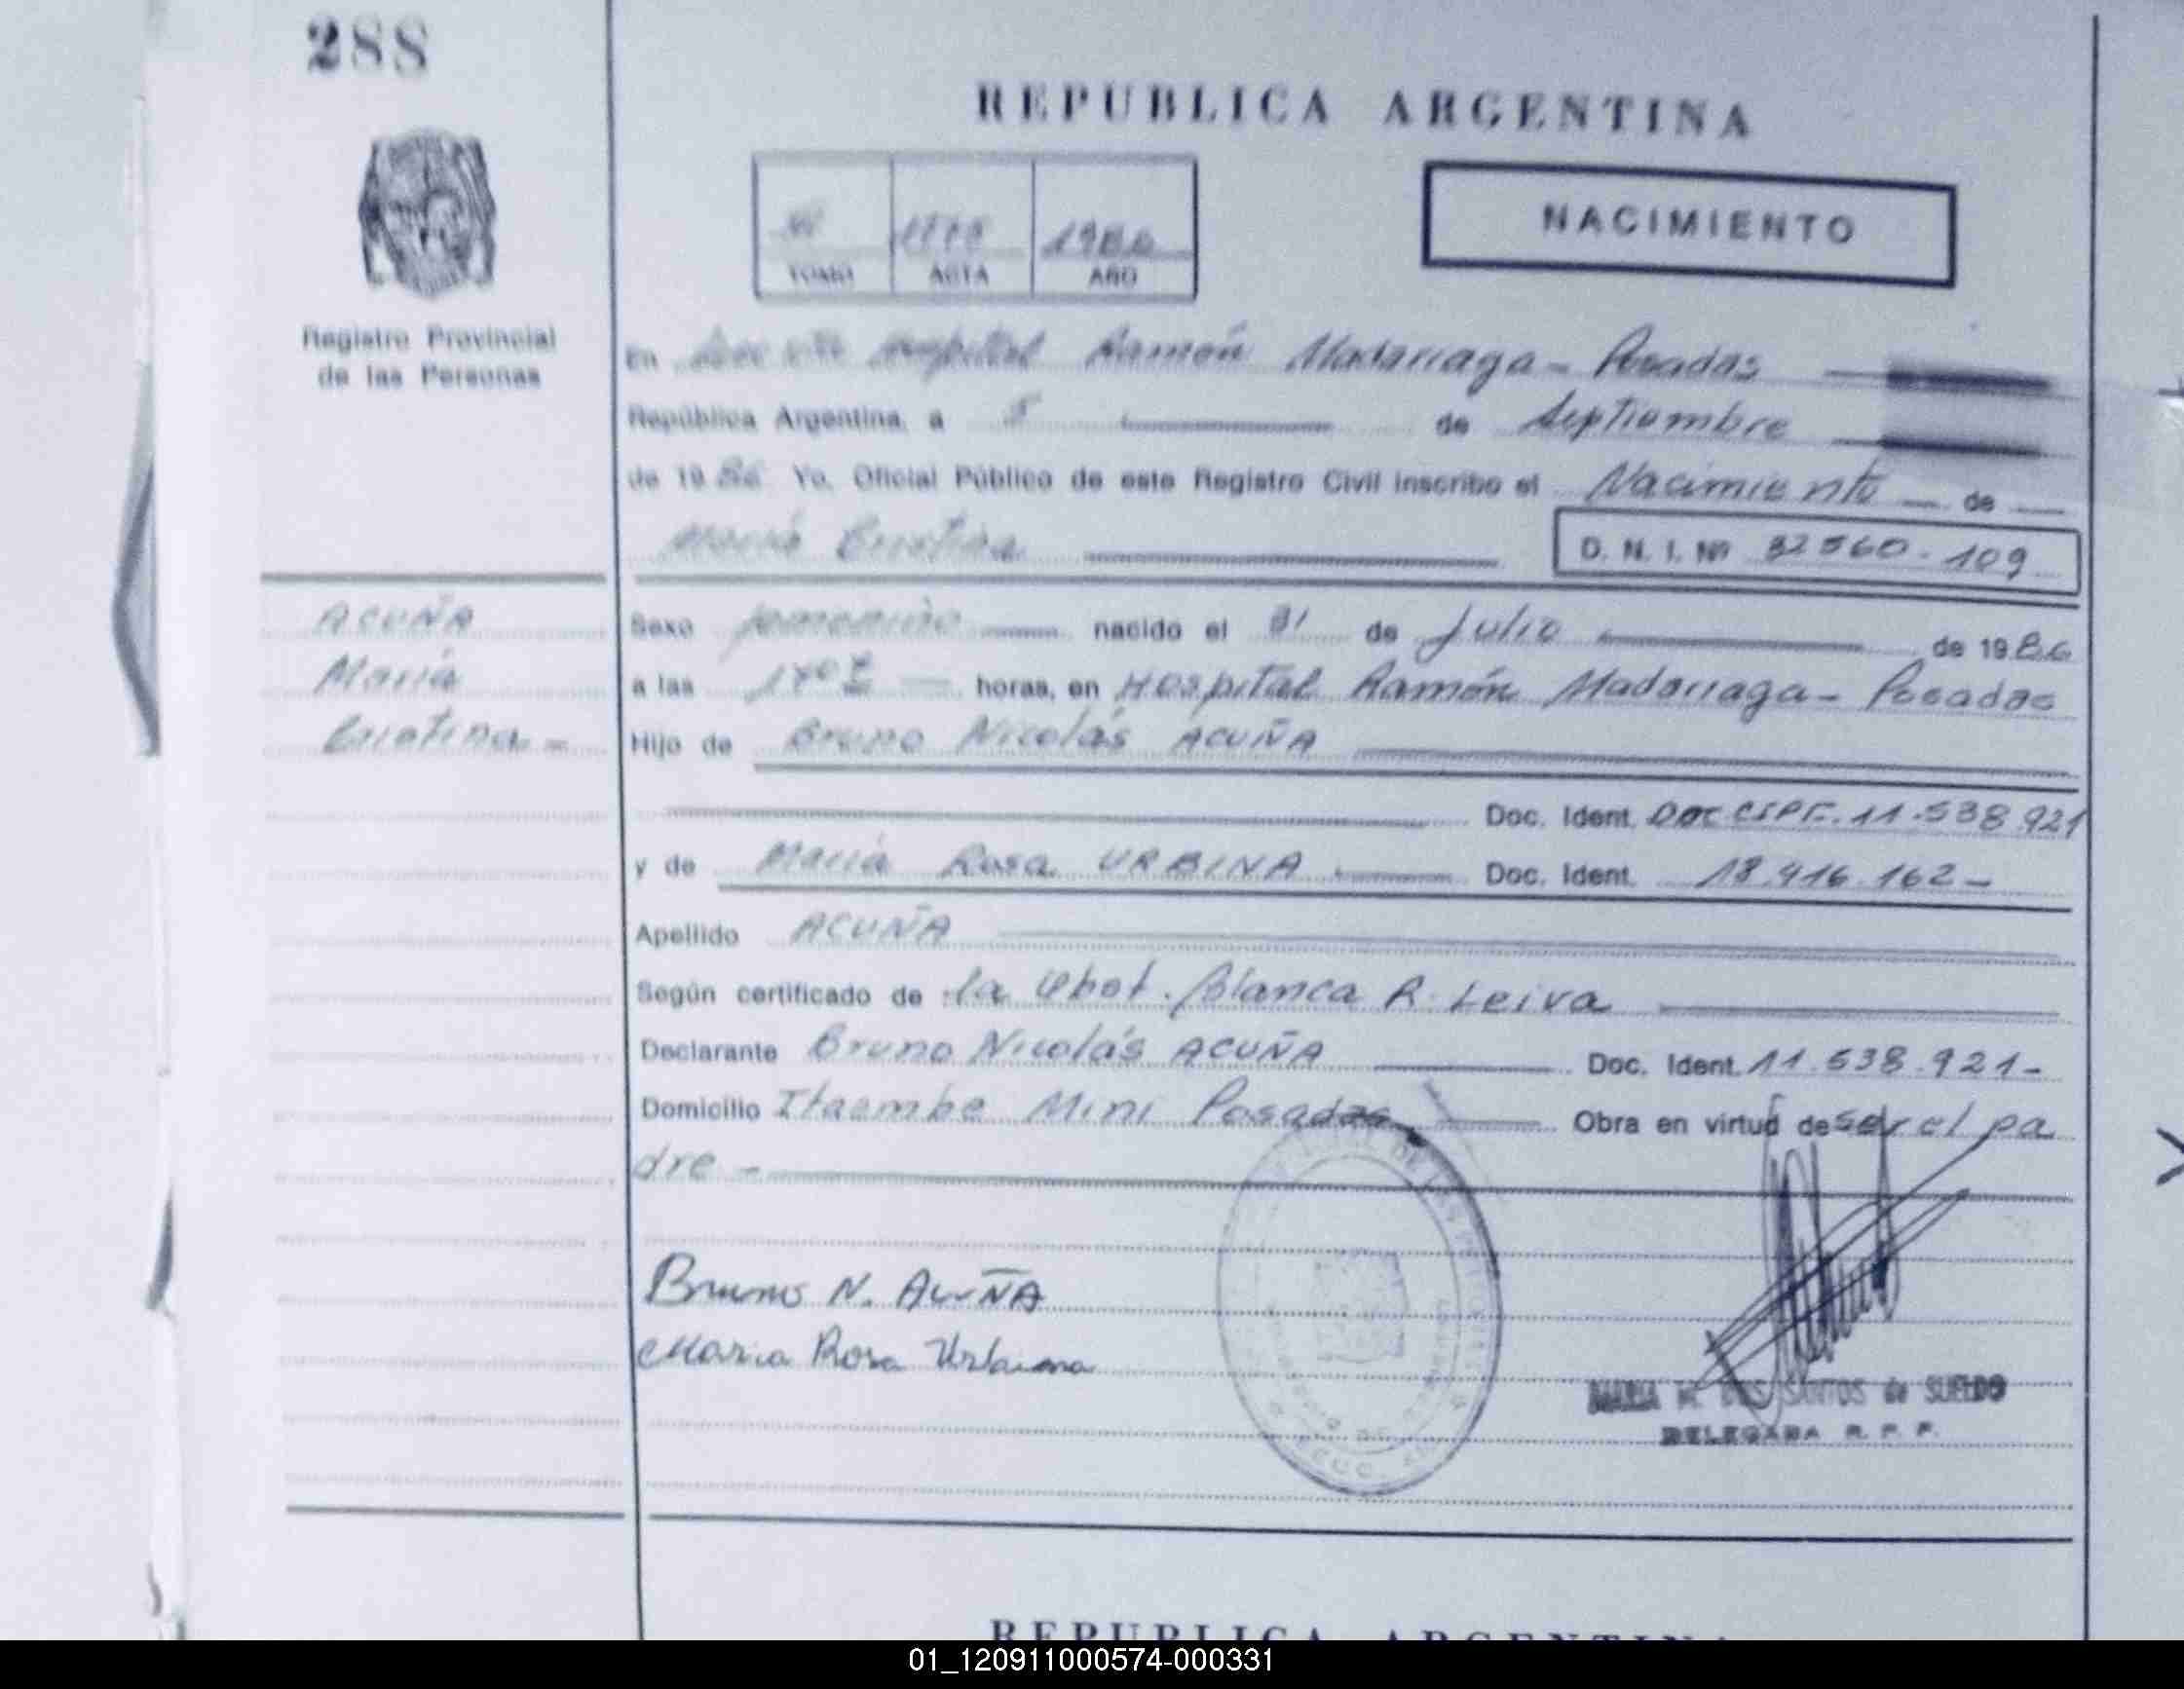 288
REPUBLICA ARGENTINA
NACIMIENTO
TOMO ACTA AÑO
1986
Registro Provincial
de las Personas
En Hospital Ramón Madariaga - Posadas
República Argentina, a 5 de Septiembre
de 1986 Yo, Oficial Público de este Registro Civil inscribo el Nacimiento de
María Cristina
D. N. I. Nº 32560.109
ACUÑA
María
Cristina -
Sexo femenino nacido el 31 de Julio de 1986
a las horas, en Hospital Ramón Madariaga - Posadas
Hijo de Bruno Nicolás ACUÑA
Doc. Ident. 11.538.921
y de María Rosa URBINA Doc. Ident. 18.416.162 -
Apellido ACUÑA
Según certificado de la Obst. Blanca R. Leiva
Declarante Bruno Nicolás ACUÑA Doc. Ident. 11.538.921-
Domicilio Itaembe Mini Posadas Obra en virtud de ser el pa
dre -
Bruno N. ACUÑA
Maria Rosa Urbina
MARIA M. DOS SANTOS de SUELDO
DELEGADA R. P. P.
REPUBLICA ARGENTINA
01_120911000574-000331